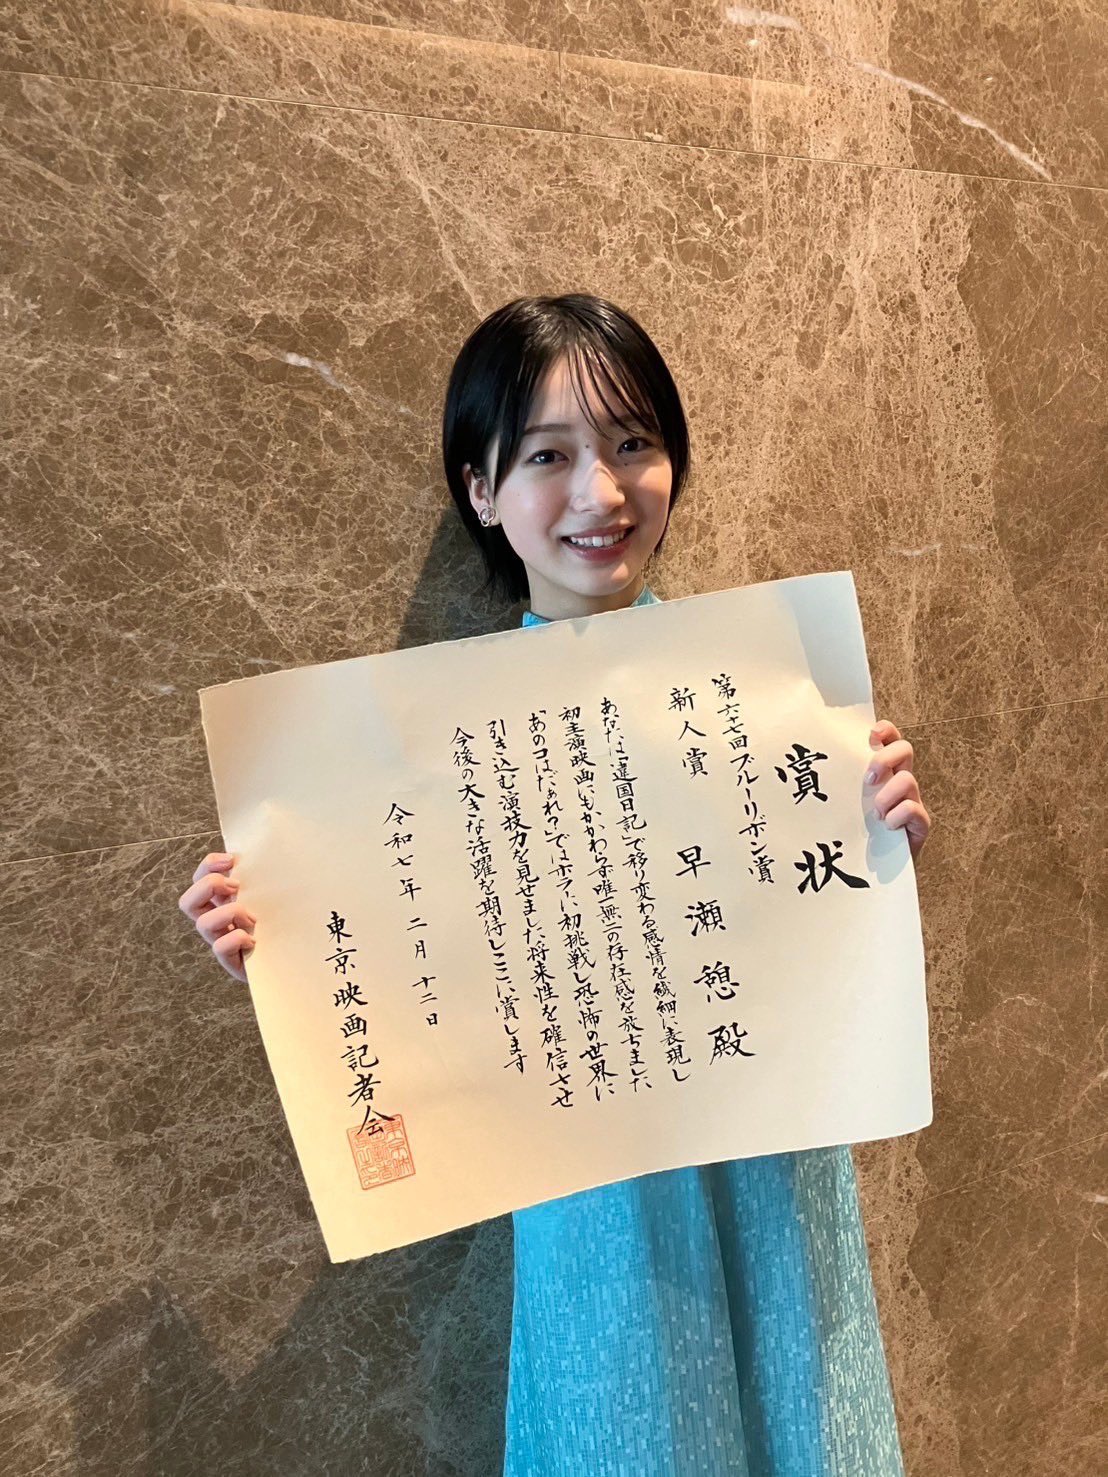 賞状
第六十七回ブルーリボン賞
新人賞 早瀬憩殿
あなたは「違国日記」で移り変わる感情を繊細に表現し
初主演映画にもかかわらず唯一無二の存在感を放ちました
「あのコはだぁれ?」ではホラーに初挑戦し恐怖の世界に
引き込む演技力を見せました将来性を確信させ
今後の大きな活躍を期待しここに賞します
令和七年 二月 十二日
東京映画記者会